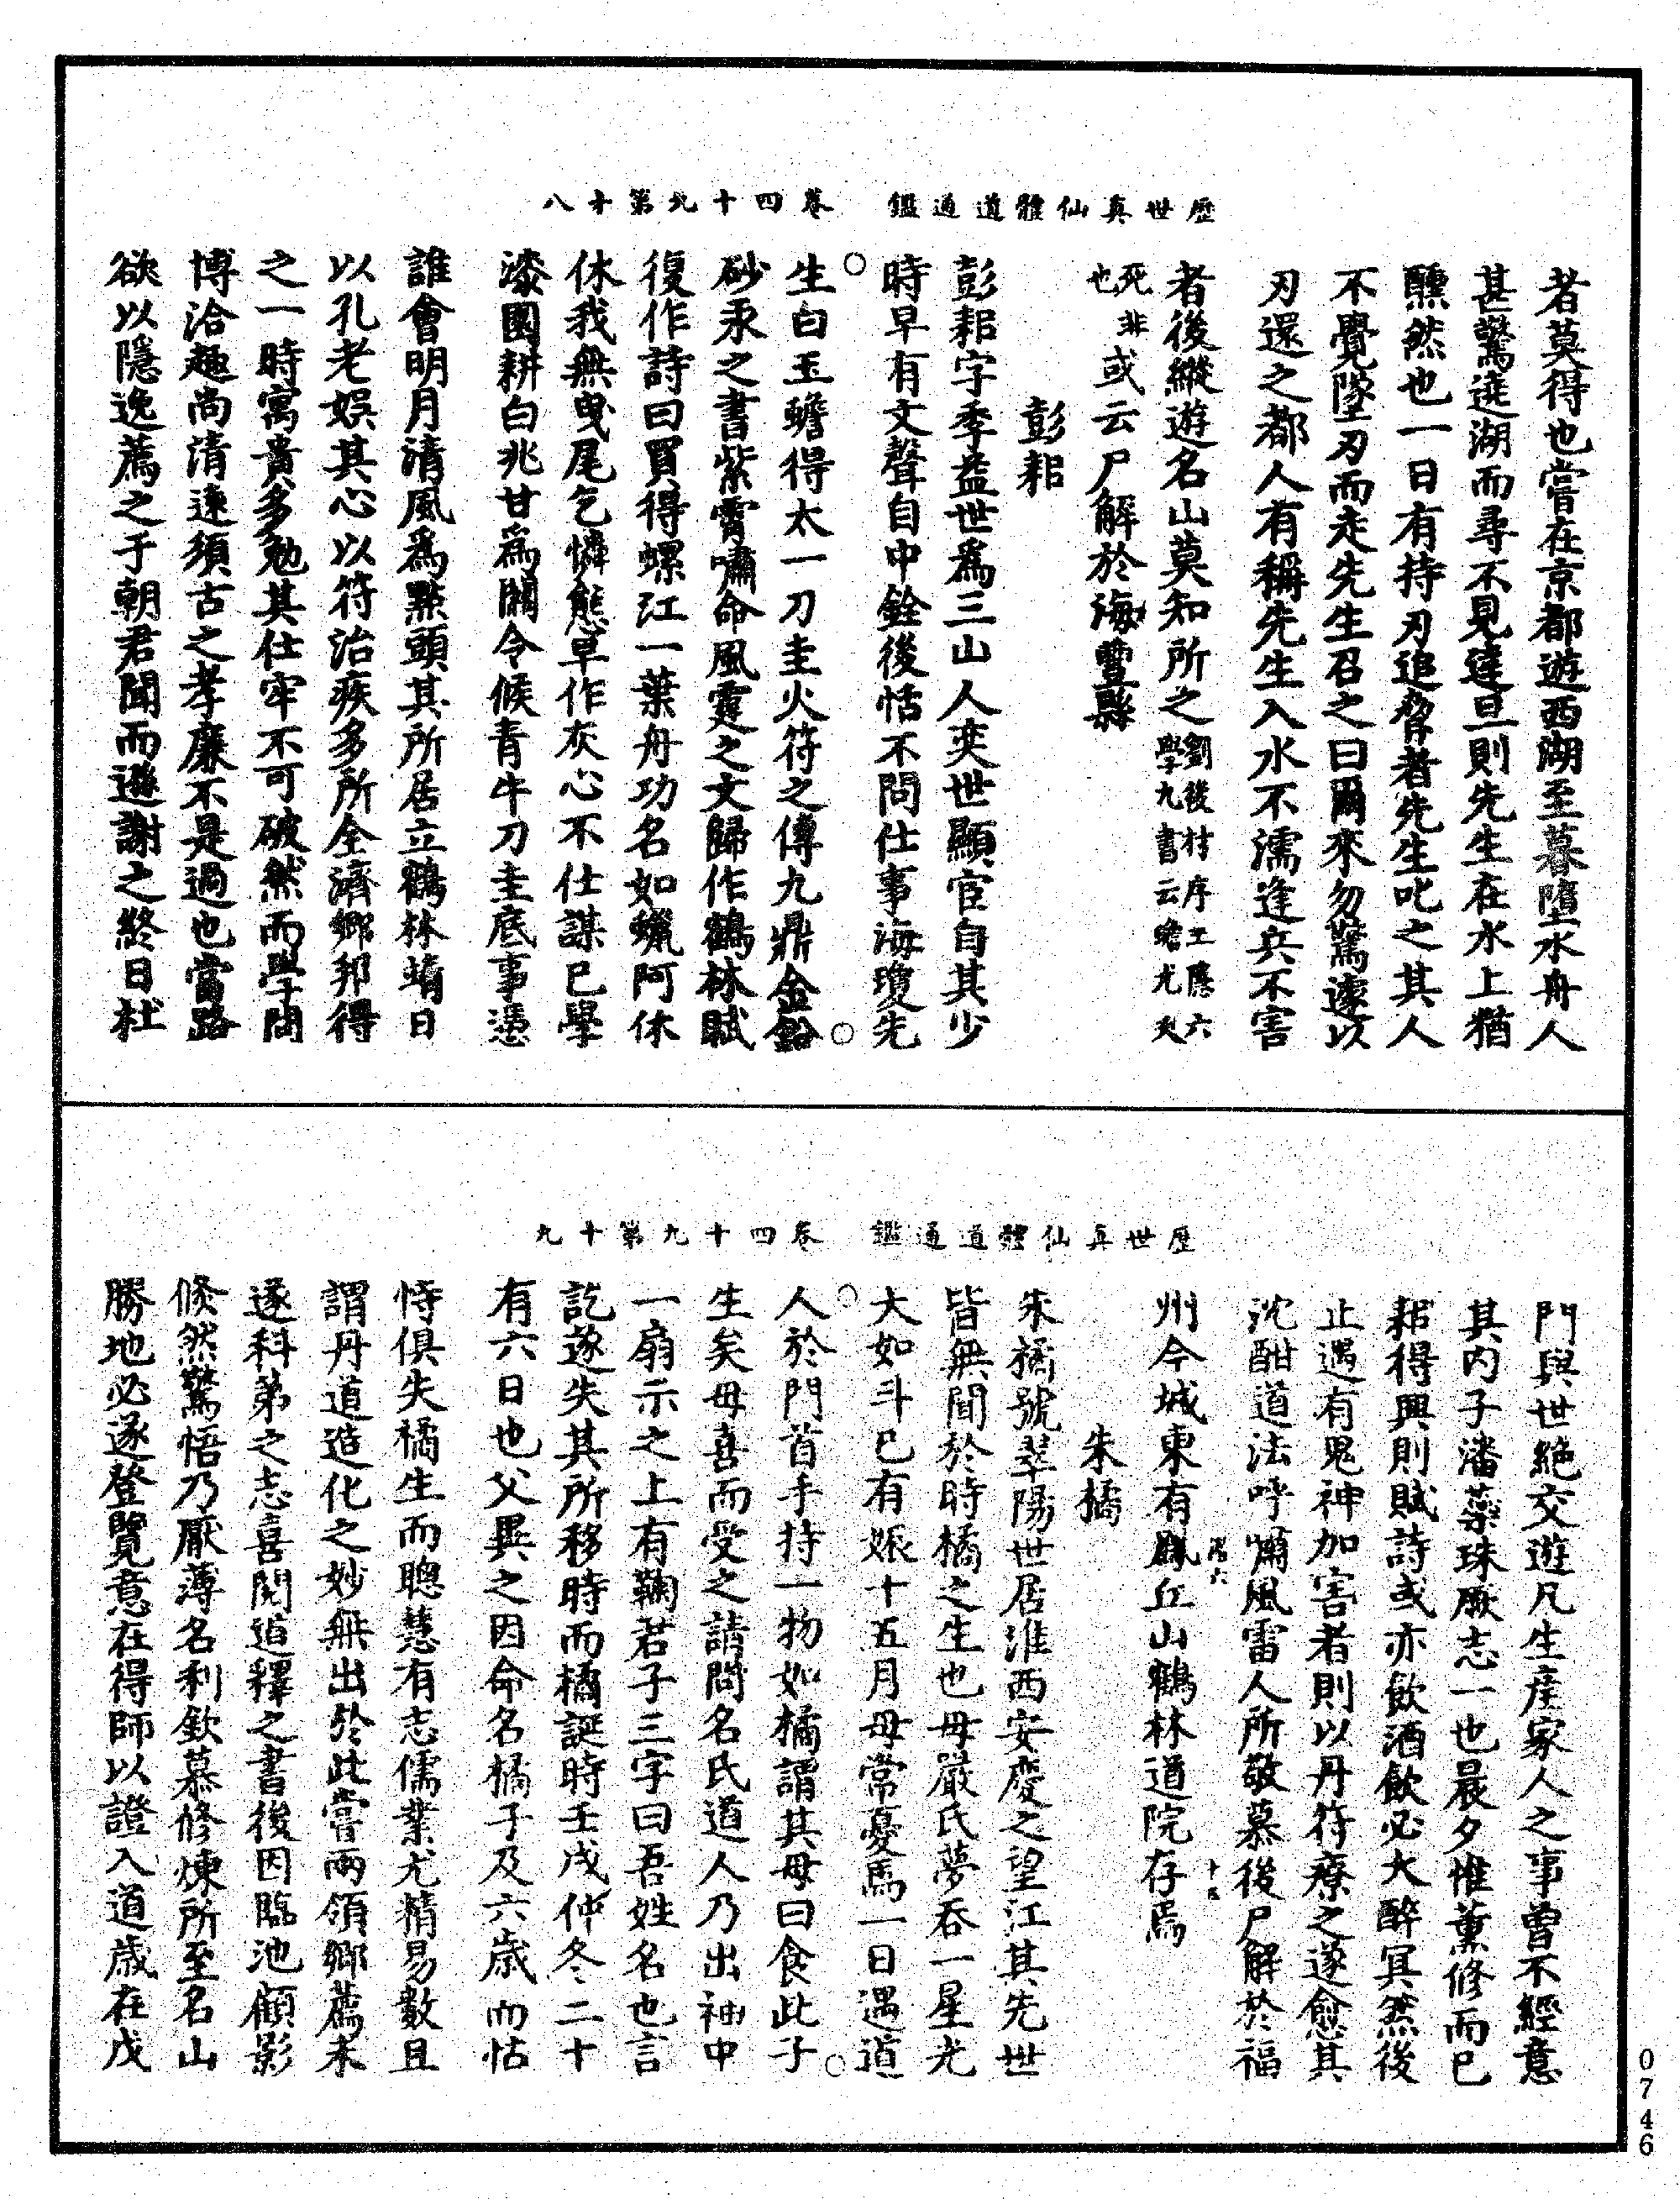 歷世真仙體道通鑑　卷四十九第十八
者莫得也嘗在京都遊西湖至暮墮水舟人
甚驚遶湖而尋不見達旦則先生在水上猶
醺然也一日有持刃追脅者先生叱之其人
不覺墜刃而走先生召之曰爾來勿驚遽以
刃還之都人有稱先生入水不濡逢兵不害
者後縱遊名山莫知所之劉後村序王隱六
學九書云蟾尤夭
死非
也
或云尸解於海豐縣
彭耜
彭耜字季益世爲三山人奕世顯宦自其少
時早有文聲自中銓後恬不問仕事海瓊先
生白玉蟾得太一刀圭火符之傳九鼎金鉛
砂汞之書紫霄嘯命風霆之文歸作鶴林賦
復作詩曰買得螺江一葉舟功名如蠟阿休
休我無曳尾乞憐態早作灰心不仕謀已學
漆園耕白兆甘爲關令候青牛刀圭底事憑
誰會明月清風爲點頭其所居立鶴林靖日
以孔老娛其心以符治疾多所全濟鄉邦得
之一時寓貴多勉其仕牢不可破然而學問
博洽趣尚清遠須古之孝廉不是過也當路
欲以隱逸薦之于朝君聞而遜謝之終日杜
歷世真仙體道通鑑　卷四十九第十九
門與世絶交遊凡生產家人之事曾不經意
其内子潘蘂珠厥志一也晨夕惟薰修而已
耜得興則賦詩或亦飲酒飲必大醉冥然後
止遇有鬼神加害者則以丹符療之遂愈其
沈酣道法呼嘯風雷人所敬慕後尸解於福
州今城東有鳳丘山鶴林道院存焉
朱橘
朱橘號翠陽世居淮西安慶之望江其先世
皆無聞於時橘之生也母嚴氏夢吞一星光
大如斗已有娠十五月母常憂焉一日遇道
人於門首手持一物如橘謂其母曰食此子
生矣母喜而受之請問名氏道人乃出袖中
一扇示之上有鞠君子三字曰吾姓名也言
訖遂失其所移時而橘誕時壬戌仲冬二十
有六日也父異之因命名橘子及六歲而怙
恃俱失橘生而聰慧有志儒業尤精易數且
謂丹道造化之妙無出於此嘗兩領鄉薦未
遂科第之志喜閱道釋之書後因臨池顧影
倏然驚悟乃厭薄名利欽慕修煉所至名山
勝地必遂登覽意在得師以證入道歲在戊
0746